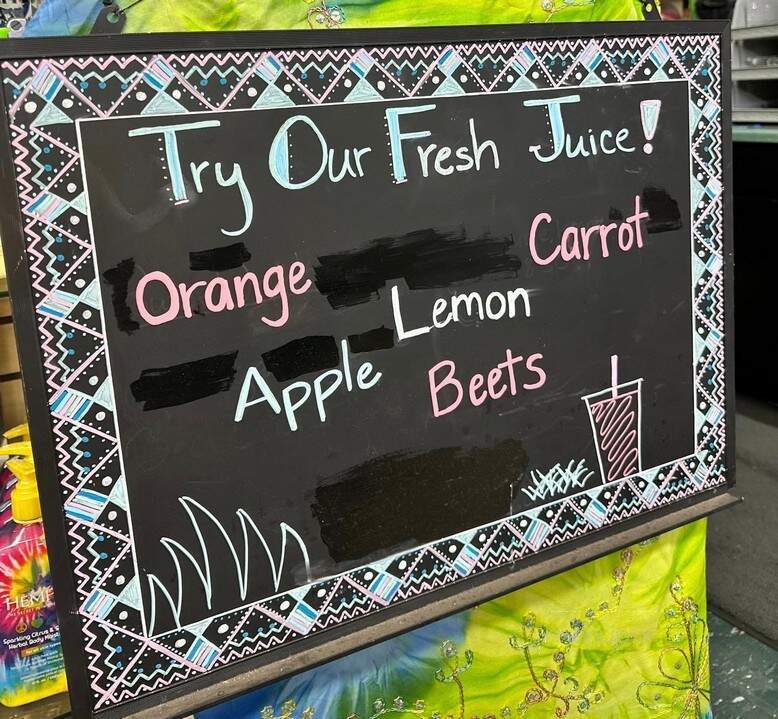 Try Our Fresh Juice!
Orange Carrot
Lemon
Apple Beets
HEMP
Sparkling Citrus &
Herbal Body